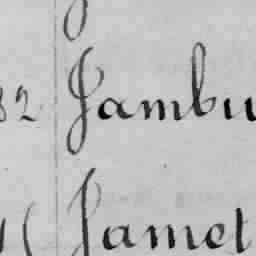 82 Jambu
Jamet